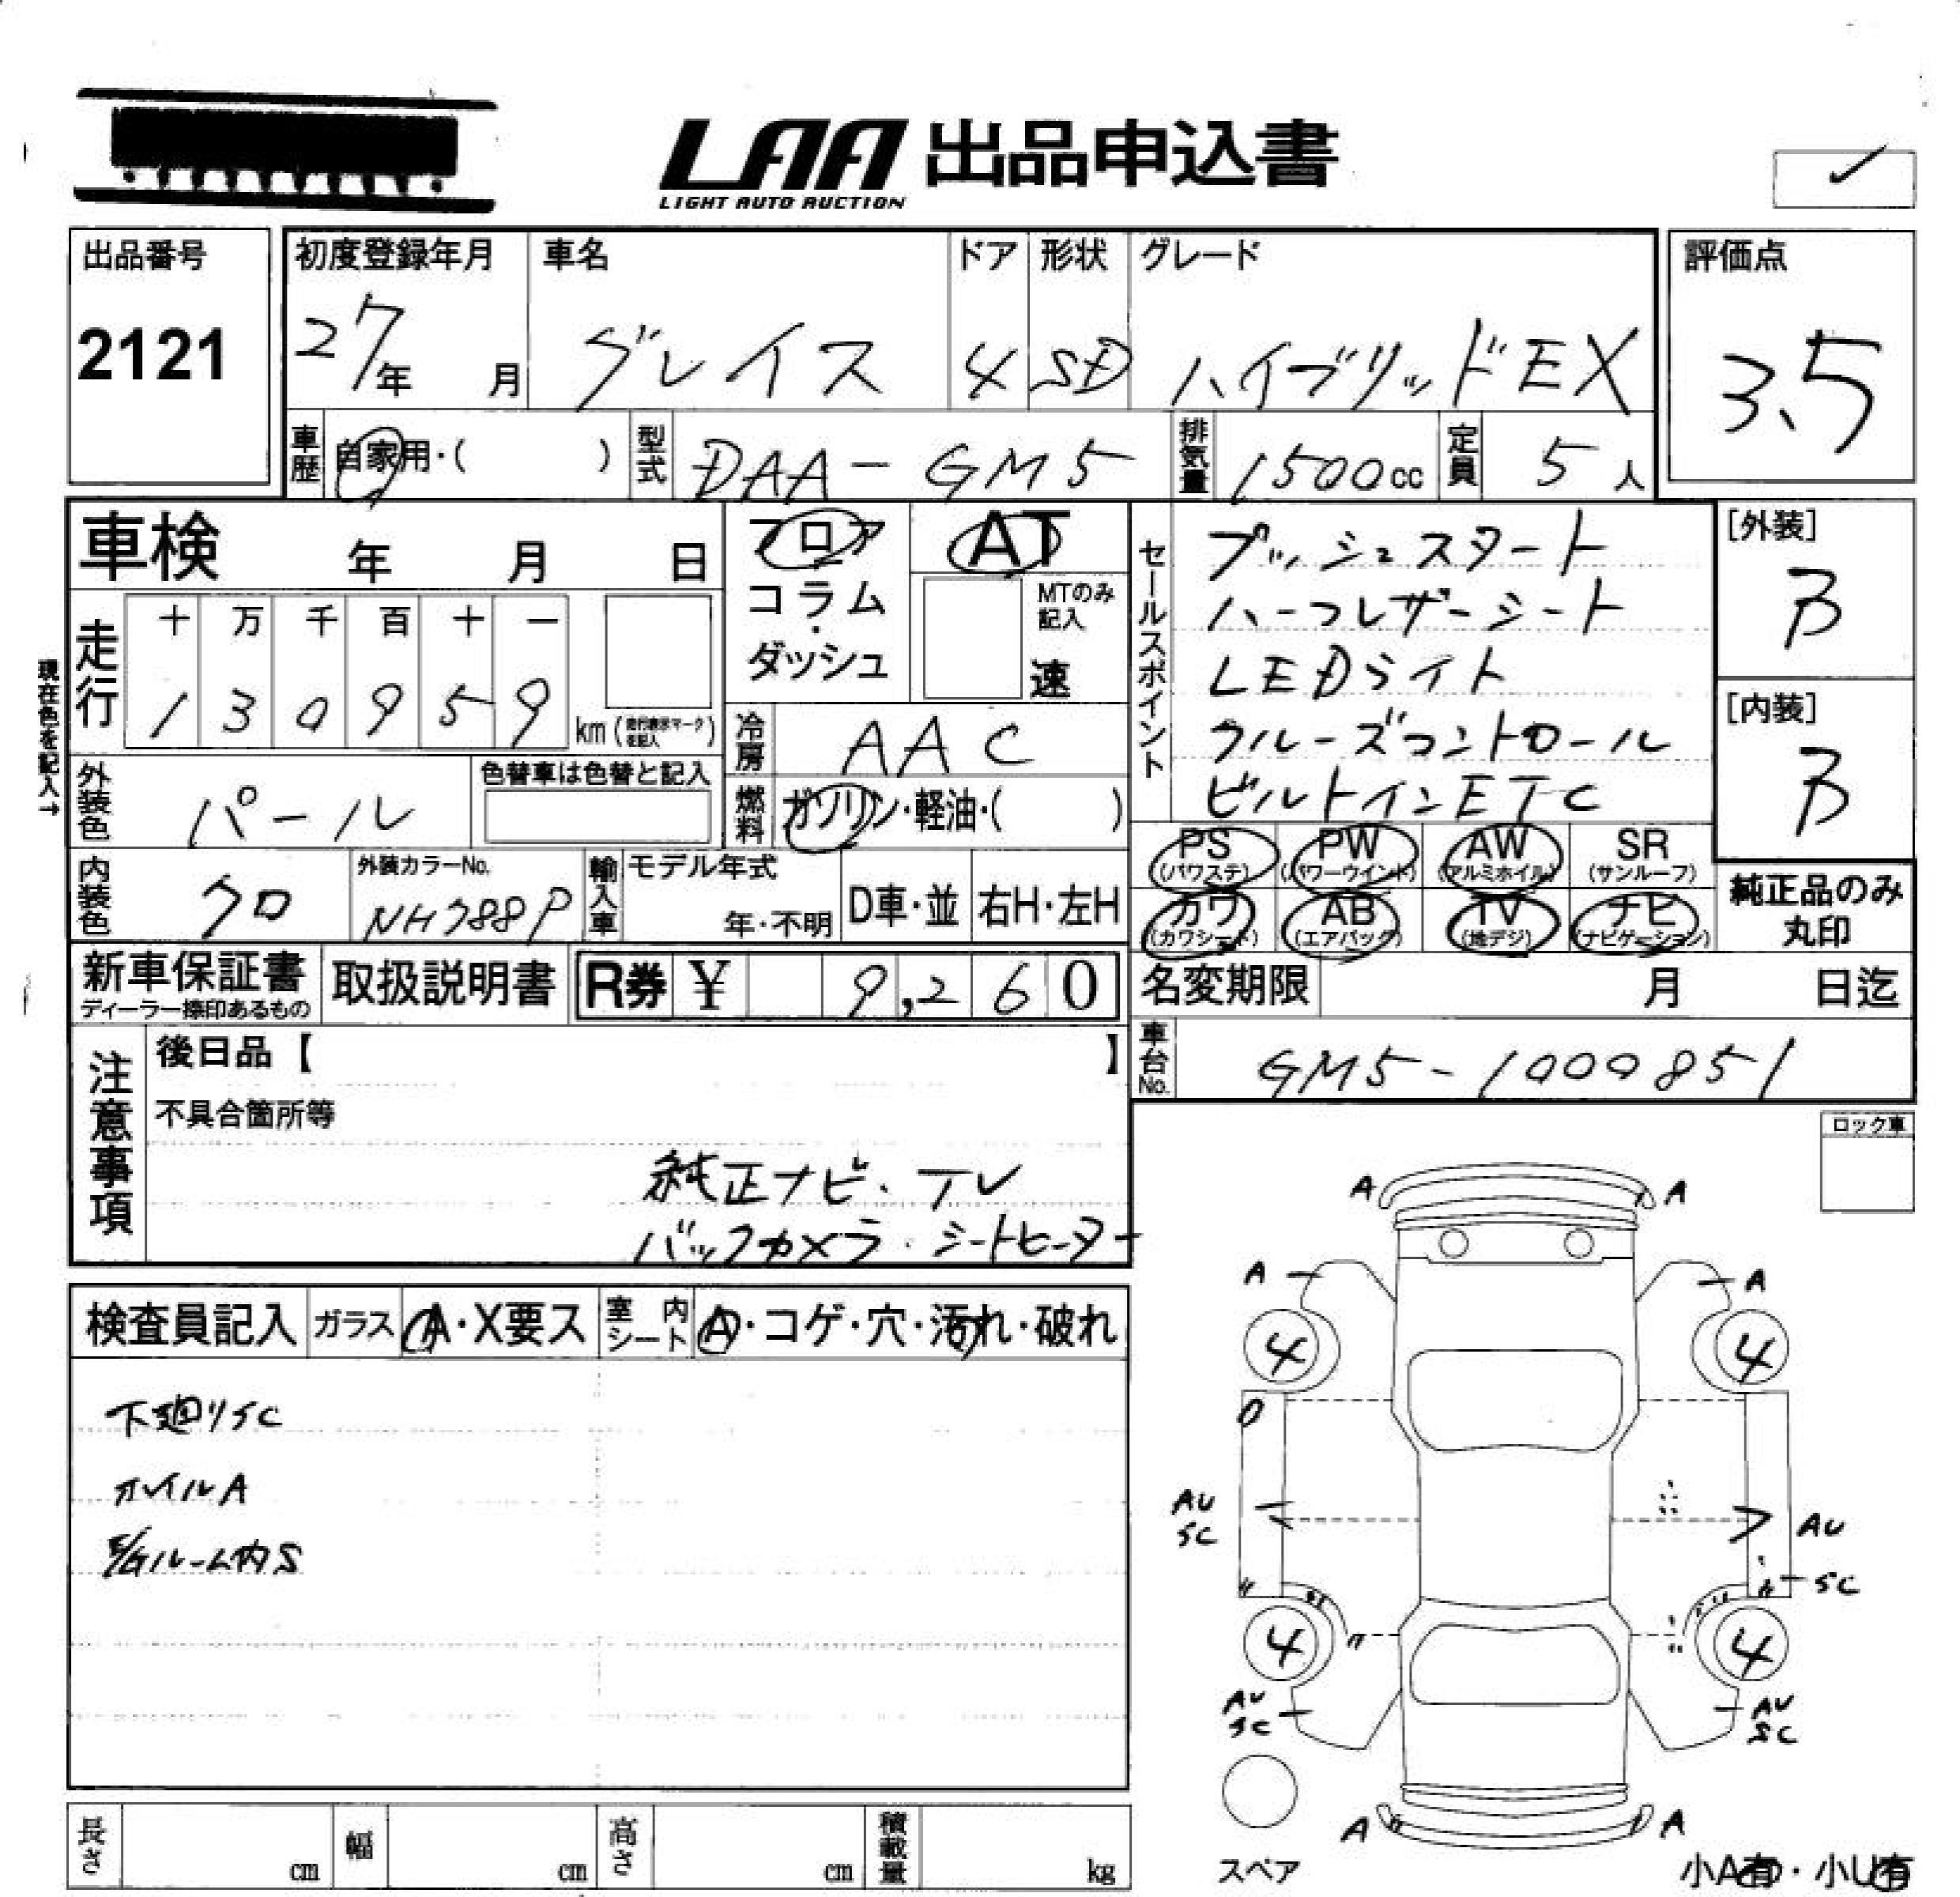 LAA 出品申込書
LIGHT AUTO AUCTION
出品番号
2121
初度登録年月
27年 月
車名
グレイス
ドア
4
形状
SD
グレード
ハイブリッドEX
評価点
3.5
車歴 自家用・( )
型式 DAA-GM5
排気量 1500cc
定員 5人
車検 年 月 日
フロア
コラム・
ダッシュ
AT
MTのみ
記入
速
セールスポイント
プッシュスタート
ハーフレザーシート
LEDライト
クルーズコントロール
ビルトインETC
[外装]
B
[内装]
B
現在色を記入→
走行
十 万 千 百 十 一
1 3 0 9 5 9
km (走行表示マークを記入)
冷房 AAC
外装色 パール
色替車は色替と記入
燃料 ガソリン・軽油・( )
PS (パワステ)
PW (パワーウインド)
AW (アルミホイル)
SR (サンルーフ)
カワ (カワシート)
AB (エアバッグ)
TV (地デジ)
ナビ (ナビゲーション)
純正品のみ
丸印
内装色 クロ
外装カラーNo.
NH788P
輸入車
モデル年式
年・不明
D車・並
右H・左H
新車保証書
ディーラー捺印あるもの
取扱説明書
R券 ¥ 9,260
名変期限 月 日迄
車台No. GM5-1000851
注意事項
後日品【 】
不具合箇所等
純正ナビ・TV
バックカメラ・シートヒーター
ロック車
検査員記入
ガラス A・X要ス
室内シート A・コゲ・穴・汚れ・破れ
下廻りSC
ホイルA
E/Gルーム内S
A A
A A
4 4
0
AU
SC
AU
SC
4 4
AU
SC
AU
SC
A A
スペア
小A有・小U有
長さ cm
幅 cm
高さ cm
積載量 kg